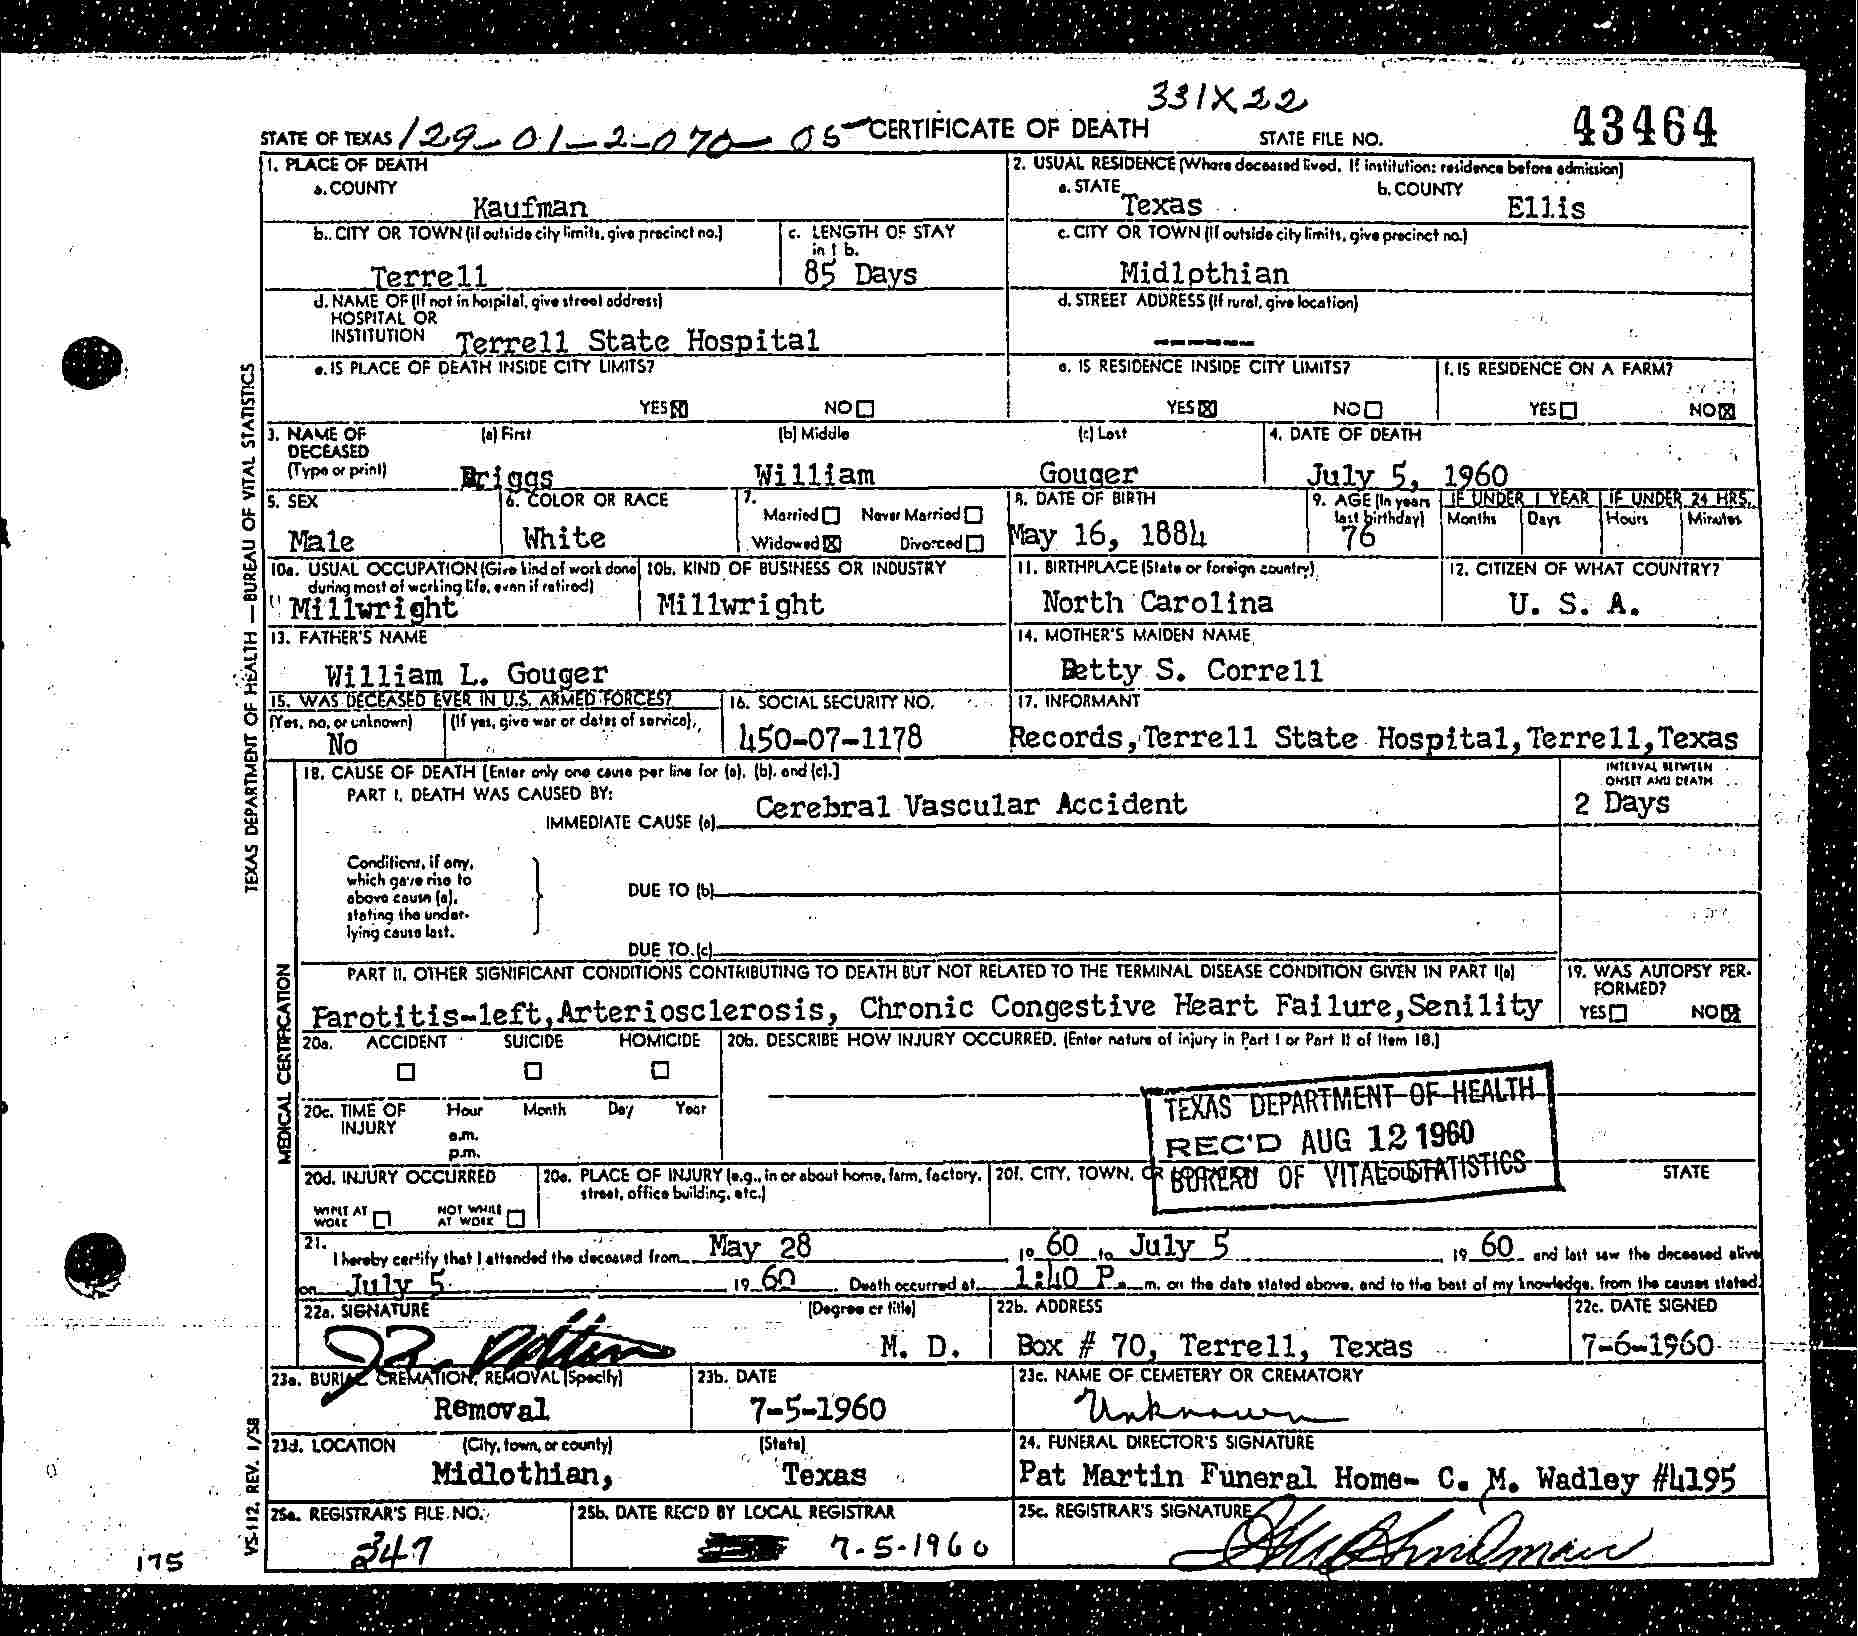 331X22
STATE OF TEXAS 129-01-2-070-05 CERTIFICATE OF DEATH STATE FILE NO. 43464
1. PLACE OF DEATH
a. COUNTY
Kaufman
2. USUAL RESIDENCE (Where deceased lived. If institution: residence before admission)
a. STATE b. COUNTY
Texas Ellis
b. CITY OR TOWN (if outside city limits, give precinct no.)
Terrell
c. LENGTH OF STAY
in 1 b.
85 Days
c. CITY OR TOWN (If outside city limits, give precinct no.)
Midlothian
d. NAME OF (If not in hospital, give street address)
HOSPITAL OR
INSTITUTION Terrell State Hospital
d. STREET ADDRESS (If rural, give location)
------
e. IS PLACE OF DEATH INSIDE CITY LIMITS?
YES☒ NO☐
e. IS RESIDENCE INSIDE CITY LIMITS?
YES☒ NO☐
f. IS RESIDENCE ON A FARM?
YES☐ NO☒
3. NAME OF
DECEASED
(Type or print)
(a) First (b) Middle (c) Last
Briggs William Gouger
4. DATE OF DEATH
July 5, 1960
5. SEX
Male
6. COLOR OR RACE
White
7.
Married☐ Never Married☐
Widowed☒ Divorced☐
8. DATE OF BIRTH
May 16, 1884
9. AGE (In years
last birthday)
76
IF UNDER 1 YEAR IF UNDER 24 HRS.
Months Days Hours Minutes
10a. USUAL OCCUPATION (Give kind of work done
during most of working life, even if retired)
Millwright
10b. KIND OF BUSINESS OR INDUSTRY
Millwright
11. BIRTHPLACE (State or foreign country)
North Carolina
12. CITIZEN OF WHAT COUNTRY?
U. S. A.
13. FATHER'S NAME
William L. Gouger
14. MOTHER'S MAIDEN NAME
Betty S. Correll
15. WAS DECEASED EVER IN U.S. ARMED FORCES?
(Yes, no, or unknown) (If yes, give war or dates of service)
No
16. SOCIAL SECURITY NO.
450-07-1178
17. INFORMANT
Records, Terrell State Hospital, Terrell, Texas
18. CAUSE OF DEATH [Enter only one cause per line for (a), (b), and (c).]
PART I. DEATH WAS CAUSED BY:
IMMEDIATE CAUSE (a) Cerebral Vascular Accident
INTERVAL BETWEEN
ONSET AND DEATH
2 Days
Conditions, if any,
which gave rise to
above cause (a),
stating the under-
lying cause last.
DUE TO (b)
DUE TO (c)
PART II. OTHER SIGNIFICANT CONDITIONS CONTRIBUTING TO DEATH BUT NOT RELATED TO THE TERMINAL DISEASE CONDITION GIVEN IN PART I(a)
Parotitis-left, Arteriosclerosis, Chronic Congestive Heart Failure, Senility
19. WAS AUTOPSY PER-
FORMED?
YES☐ NO☒
20a. ACCIDENT SUICIDE HOMICIDE
☐ ☐ ☐
20b. DESCRIBE HOW INJURY OCCURRED. (Enter nature of injury in Part I or Part II of Item 18.)
20c. TIME OF
INJURY
Hour Month Day Year
a.m.
p.m.
TEXAS DEPARTMENT OF HEALTH
REC'D AUG 12 1960
BUREAU OF VITAL STATISTICS
20d. INJURY OCCURRED
WHILE AT
WORK ☐
NOT WHILE
AT WORK ☐
20e. PLACE OF INJURY (e.g., in or about home, farm, factory,
street, office building, etc.)
20f. CITY, TOWN, OR STATE
21.
I hereby certify that I attended the deceased from May 28 19 60 to July 5 19 60 and last saw the deceased alive
on July 5 19 60. Death occurred at 1:40 P. m. on the date stated above, and to the best of my knowledge, from the causes stated.
22a. SIGNATURE (Degree or title)
M. D.
22b. ADDRESS
Box # 70, Terrell, Texas
22c. DATE SIGNED
7-6-1960
23a. BURIAL, CREMATION, REMOVAL (Specify)
Removal
23b. DATE
7-5-1960
23c. NAME OF CEMETERY OR CREMATORY
Unknown
23d. LOCATION (City, town, or county) (State)
Midlothian, Texas
24. FUNERAL DIRECTOR'S SIGNATURE
Pat Martin Funeral Home- C. M. Wadley #4195
25a. REGISTRAR'S FILE NO.
347
25b. DATE REC'D BY LOCAL REGISTRAR
7-5-1960
25c. REGISTRAR'S SIGNATURE
TEXAS DEPARTMENT OF HEALTH — BUREAU OF VITAL STATISTICS
MEDICAL CERTIFICATION
VS-112, REV. 1/58
175